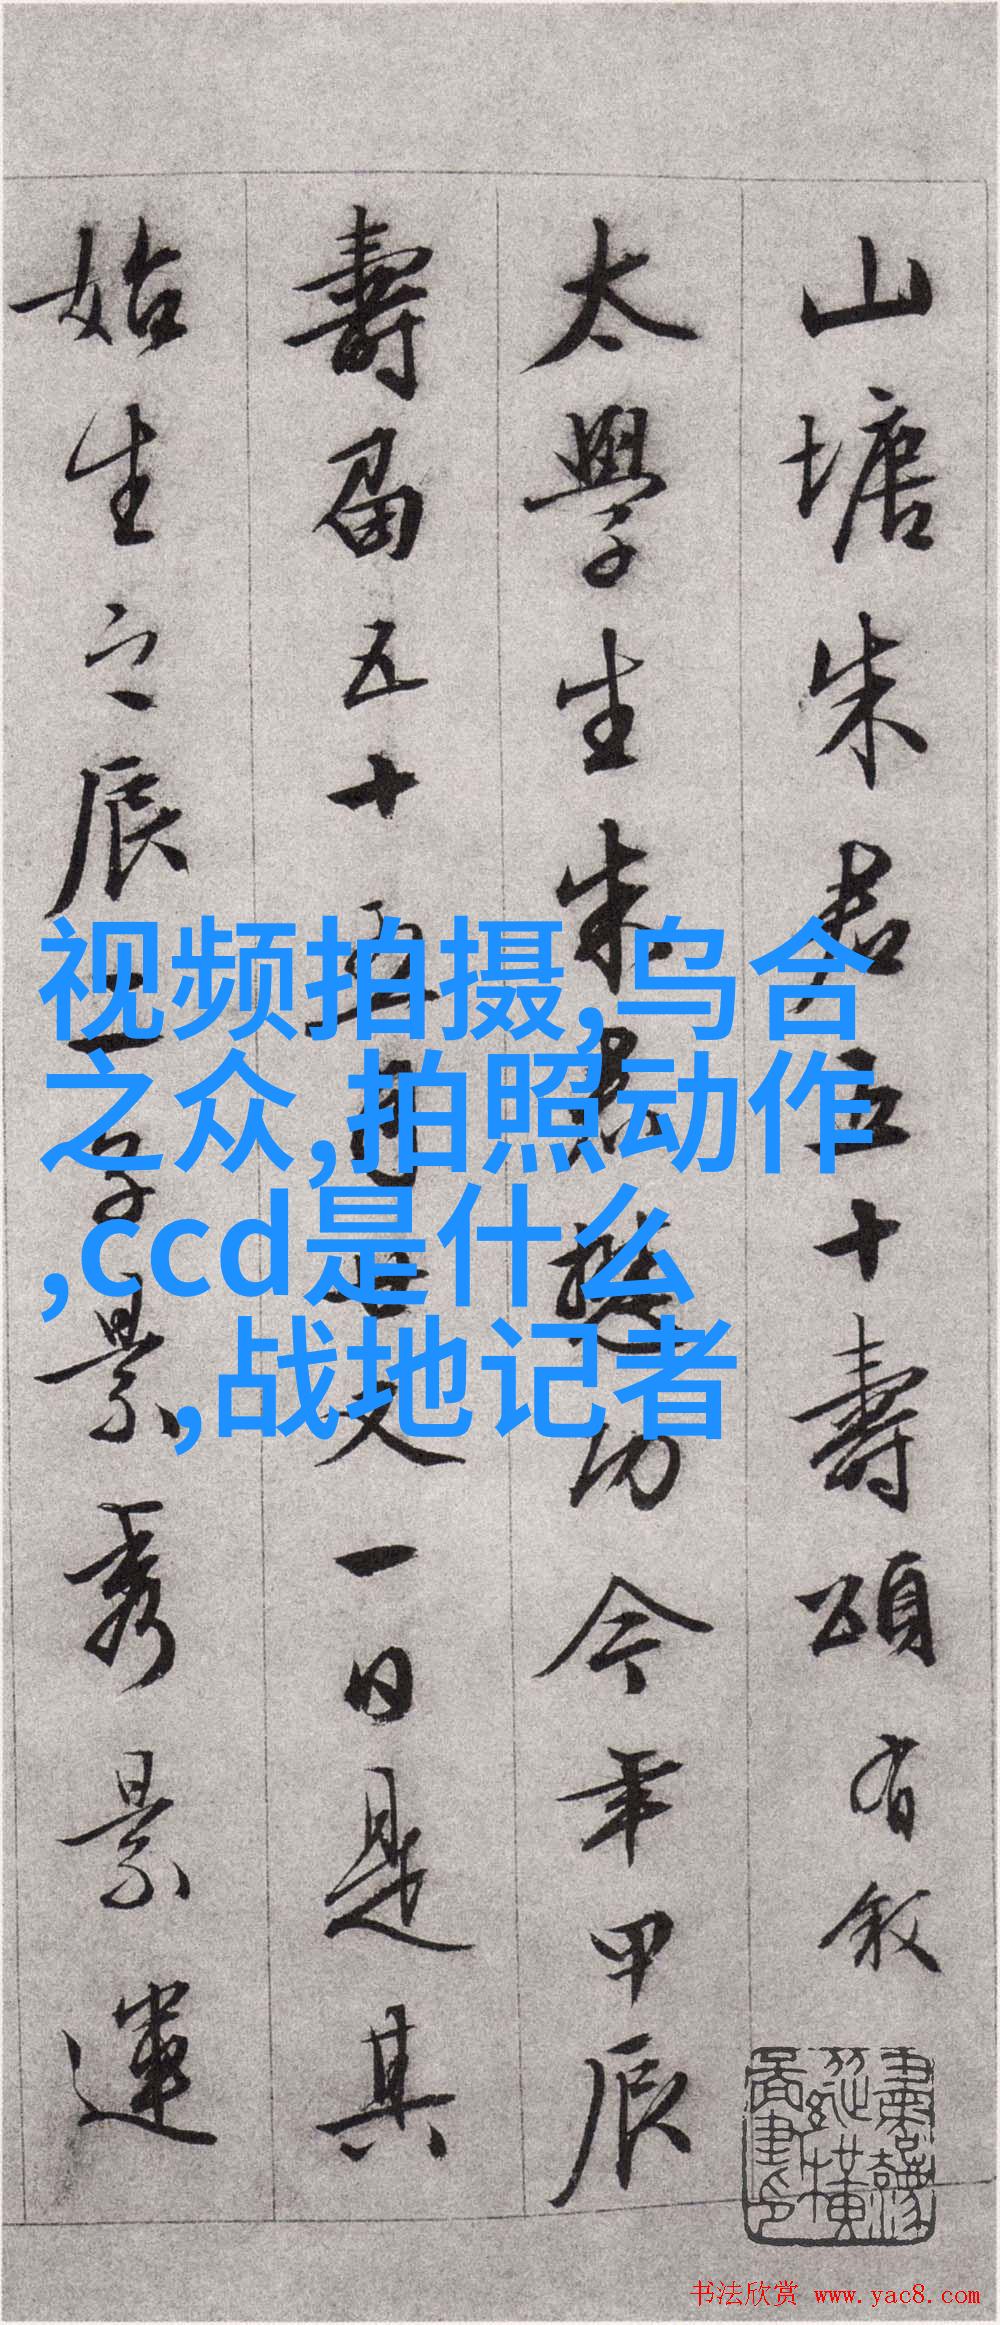 山塘朱君五十壽頌有叙
太學生朱君懋功今年甲辰
壽届五十五月廿又一日是其
始生之辰二子景秀景運
视频拍摄,乌合
之众,拍照动作
,ccd是什么
,战地记者
书法欣赏 www.yac8.com